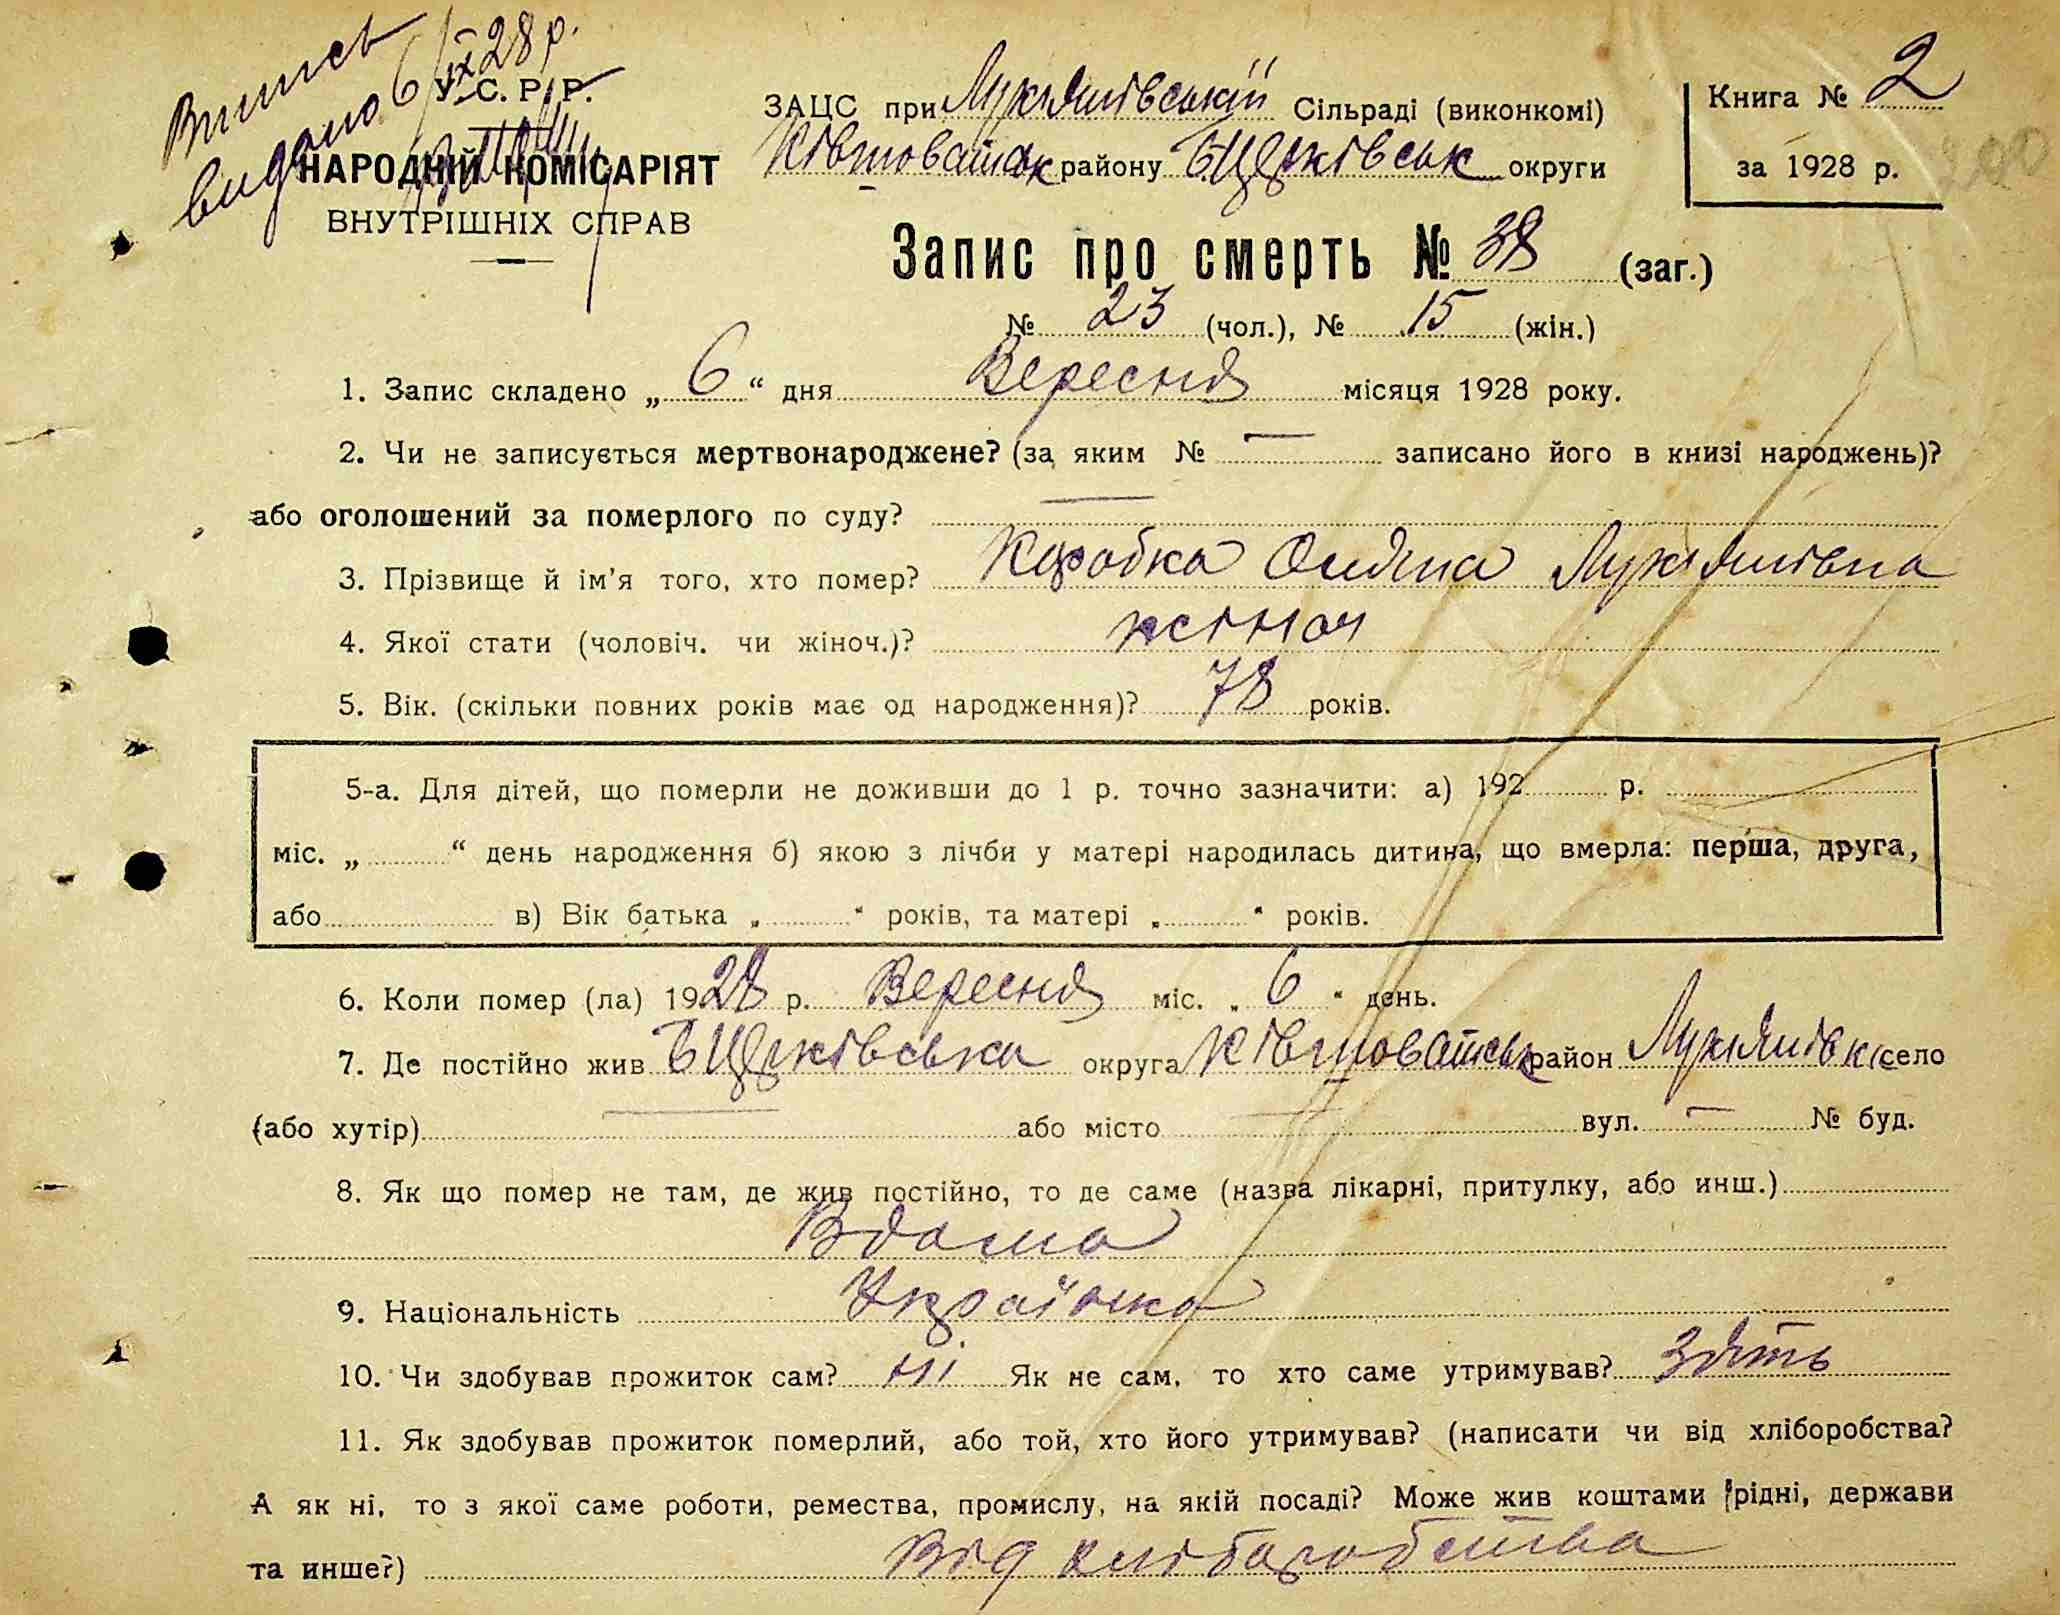 Випись
видано 6/IX 28 р.
У. С. Р. Р.
НАРОДНІЙ КОМІСАРІЯТ
ВНУТРІШНІХ СПРАВ
ЗАЦС при Лукянівській Сільраді (виконкомі)
Ківшоватськ району Б Церківськ округи
Книга № 2
за 1928 р.
Запис про смерть № 38 (заг.)
№ 23 (чол.), № 15 (жін.)
1. Запис складено „ 6 “ дня Вересня місяця 1928 року.
2. Чи не записується мертвонароджене? (за яким № — записано його в книзі народжень)?
або оголошений за померлого по суду? —
3. Прізвище й ім'я того, хто помер? Коробка Лукянівна
4. Якої стати (чоловіч. чи жіноч.)? жіноч
5. Вік. (скільки повних років має од народження)? 78 років.
5-а. Для дітей, що померли не доживши до 1 р. точно зазначити: а) 192 р.
міс. „ “ день народження б) якою з лічби у матері народилась дитина, що вмерла: перша, друга,
або в) Вік батька „ “ років, та матері „ “ років.
6. Коли помер (ла) 1928 р. Вересня міс. „ 6 “ день.
7. Де постійно жив Б Церківська округа Ківшоватськ район Лукянівка село
(або хутір) — або місто — вул. — № буд.
8. Як що помер не там, де жив постійно, то де саме (назва лікарні, притулку, або инш.)
Вдома
9. Національність Українка
10. Чи здобував прожиток сам? Ні Як не сам, то хто саме утримував? Зять
11. Як здобував прожиток померлий, або той, хто його утримував? (написати чи від хліборобства?
А як ні, то з якої саме роботи, ремества, промислу, на якій посаді? Може жив коштами рідні, держави
та инше?) Від хліборобства